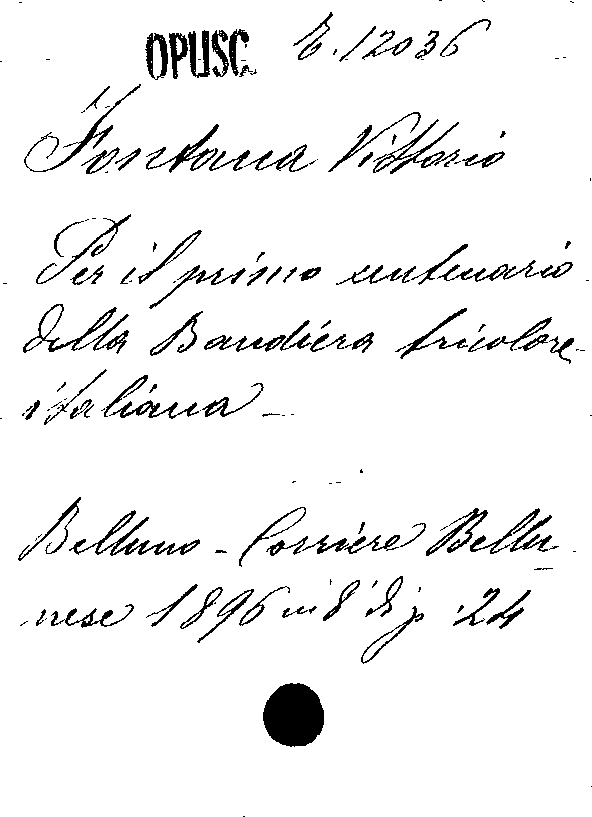 OPUSC. E. 12036
Fontana Vittorio
Per il primo centenario
della Bandiera tricolore
italiana -
Belluno - Corriere Bellu
nese 1896 in 8° di p. 24